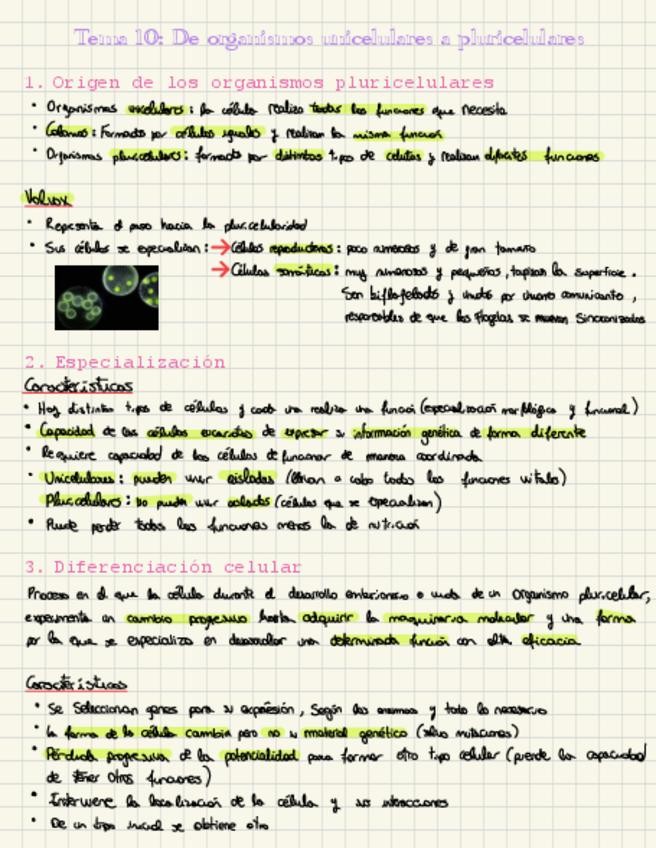 Tema 10: De organismos unicelulares a pluricelulares
1. Origen de los organismos pluricelulares
• Organismos unicelulares: la célula realiza todas las funciones que necesita
• Colonias: Formado por células iguales y realizan la misma función
• Organismos pluricelulares: formado por distintos tipos de células y realizan diferentes funciones
Volvox
• Representa el paso hacia la pluricelularidad
• Sus células se especializan: → Células reproductoras: poco numerosas y de gran tamaño
→ Células somáticas: muy numerosas y pequeñas, tapizan la superficie.
Son biflagelados y unidos por comunicante,
responsables de que los flagelos se muevan sincronizados
2. Especialización
Características
• Hay distintos tipos de células y cada una realiza una función (especialización morfológica y funcional)
• Capacidad de las células eucariotas de expresar su información genética de forma diferente
• Requiere capacidad de las células de funcionar de manera coordinada
• Unicelulares: pueden vivir aisladas (llevan a cabo todas las funciones vitales)
Pluricelulares: no pueden vivir aisladas (células que se especializan)
• Puede perder todas las funciones menos la de nutrición
3. Diferenciación celular
Proceso en el que la célula durante el desarrollo embrionario o vida de un organismo pluricelular,
experimenta un cambio progresivo hasta adquirir la maquinaria molecular y una forma
por la que se especializa en desarrollar una determinada función con alta eficacia
Características
• Se seleccionan genes para su expresión, según las enzimas y todo lo necesario
• La forma de la célula cambia pero no su material genético (salvo mutaciones)
• Pérdida progresiva de la potencialidad para formar otro tipo celular (pierde la capacidad
de tener otras funciones)
• Interviene la localización de la célula y sus interacciones
• De un tipo inicial se obtiene otro